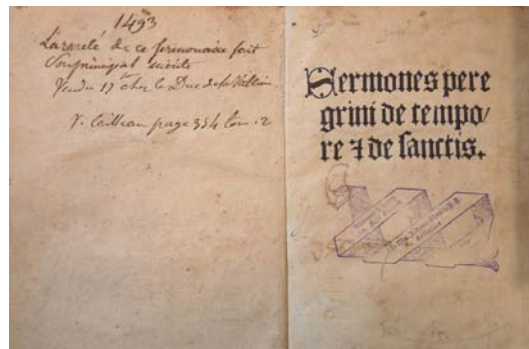 1493
La rareté de ce sermonaire fait
Son principal mérite
Vendu 17 # chez le Duc de la Valliere
V. Cailleau page 354 tom. 2
Sermones pere
grini de tempo/
re ⁊ de sanctis.